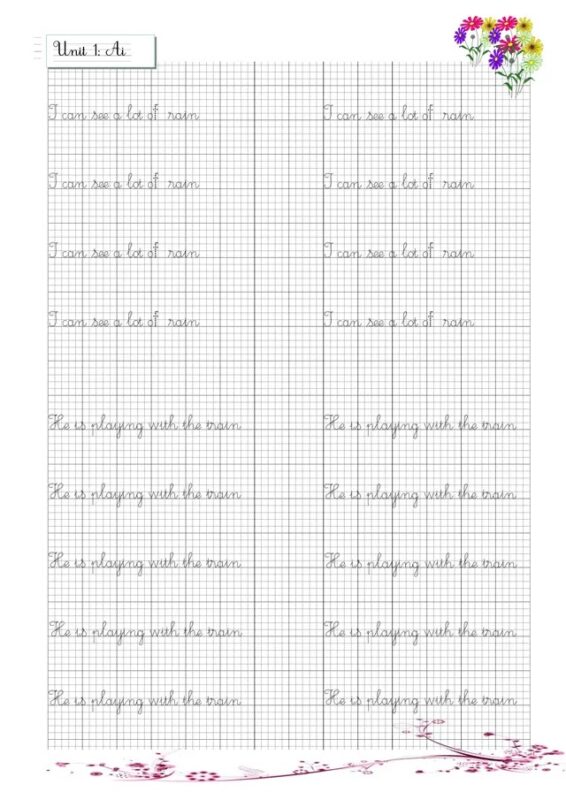 Unit 1: Ai
I can see a lot of rain I can see a lot of rain
I can see a lot of rain I can see a lot of rain
I can see a lot of rain I can see a lot of rain
I can see a lot of rain I can see a lot of rain
He is playing with the train He is playing with the train
He is playing with the train He is playing with the train
He is playing with the train He is playing with the train
He is playing with the train He is playing with the train
He is playing with the train He is playing with the train